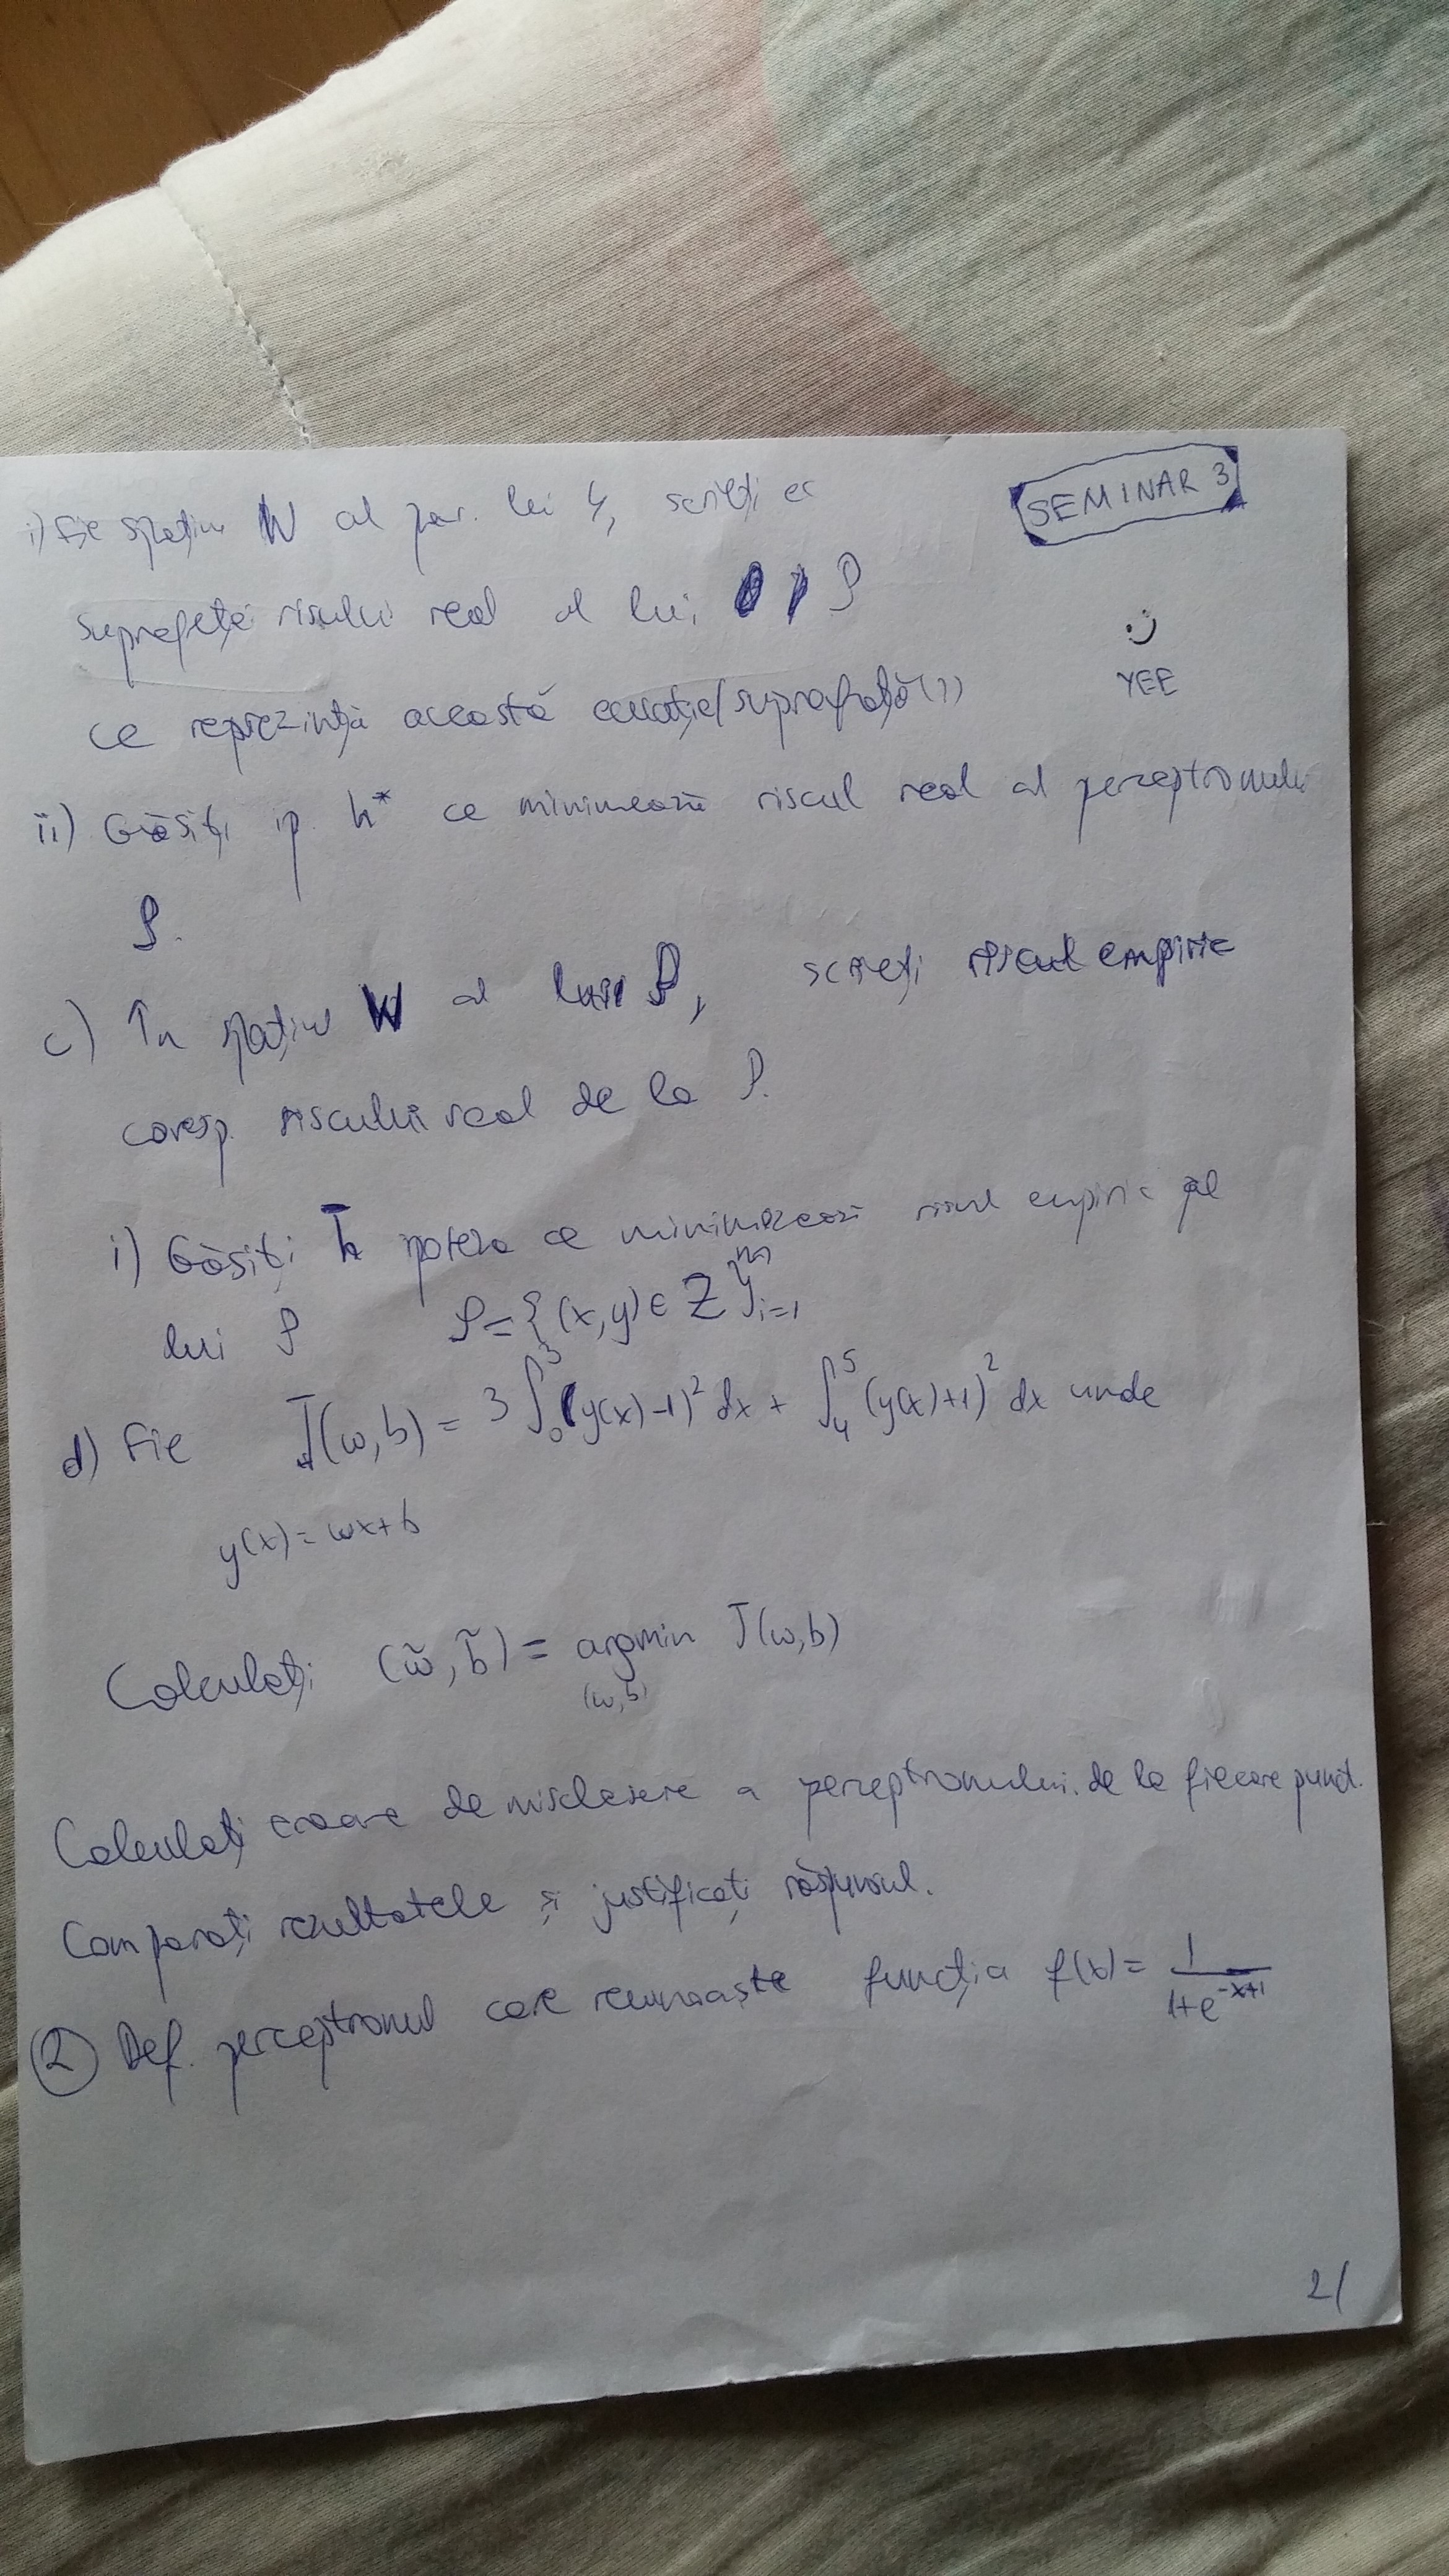 SEMINAR 3
i) Fie spațiu W al par. lui φ, scrieți ec
suprafeței riscului real al lui P
ce reprezintă această ecuație/suprafață(?)
:) YEE
ii) Găsiți ip. h* ce minimează riscul real al perceptronului
P.
c) În spațiul W al lui P, scrieți riscul empiric
coresp. riscului real de la P.
i) Găsiți h ipoteza ce minimizează riscul empiric al
lui P P={(x,y)∈Z}ᵐᵢ₌₁
d) Fie J(w,b) = 3∫₀³(y(x)-1)²dx + ∫₄⁵(y(x)+1)²dx unde
y(x)=wx+b
Calculați (w̃,b̃) = argmin J(w,b)
(w,b)
Calculați eroare de misclasare a perceptronului de la fiecare punct.
Comparați rezultatele și justificați răspunsul.
② Def. perceptronul care recunoaște funcția f(x)= 1/(1+e^(-x+1))
2/